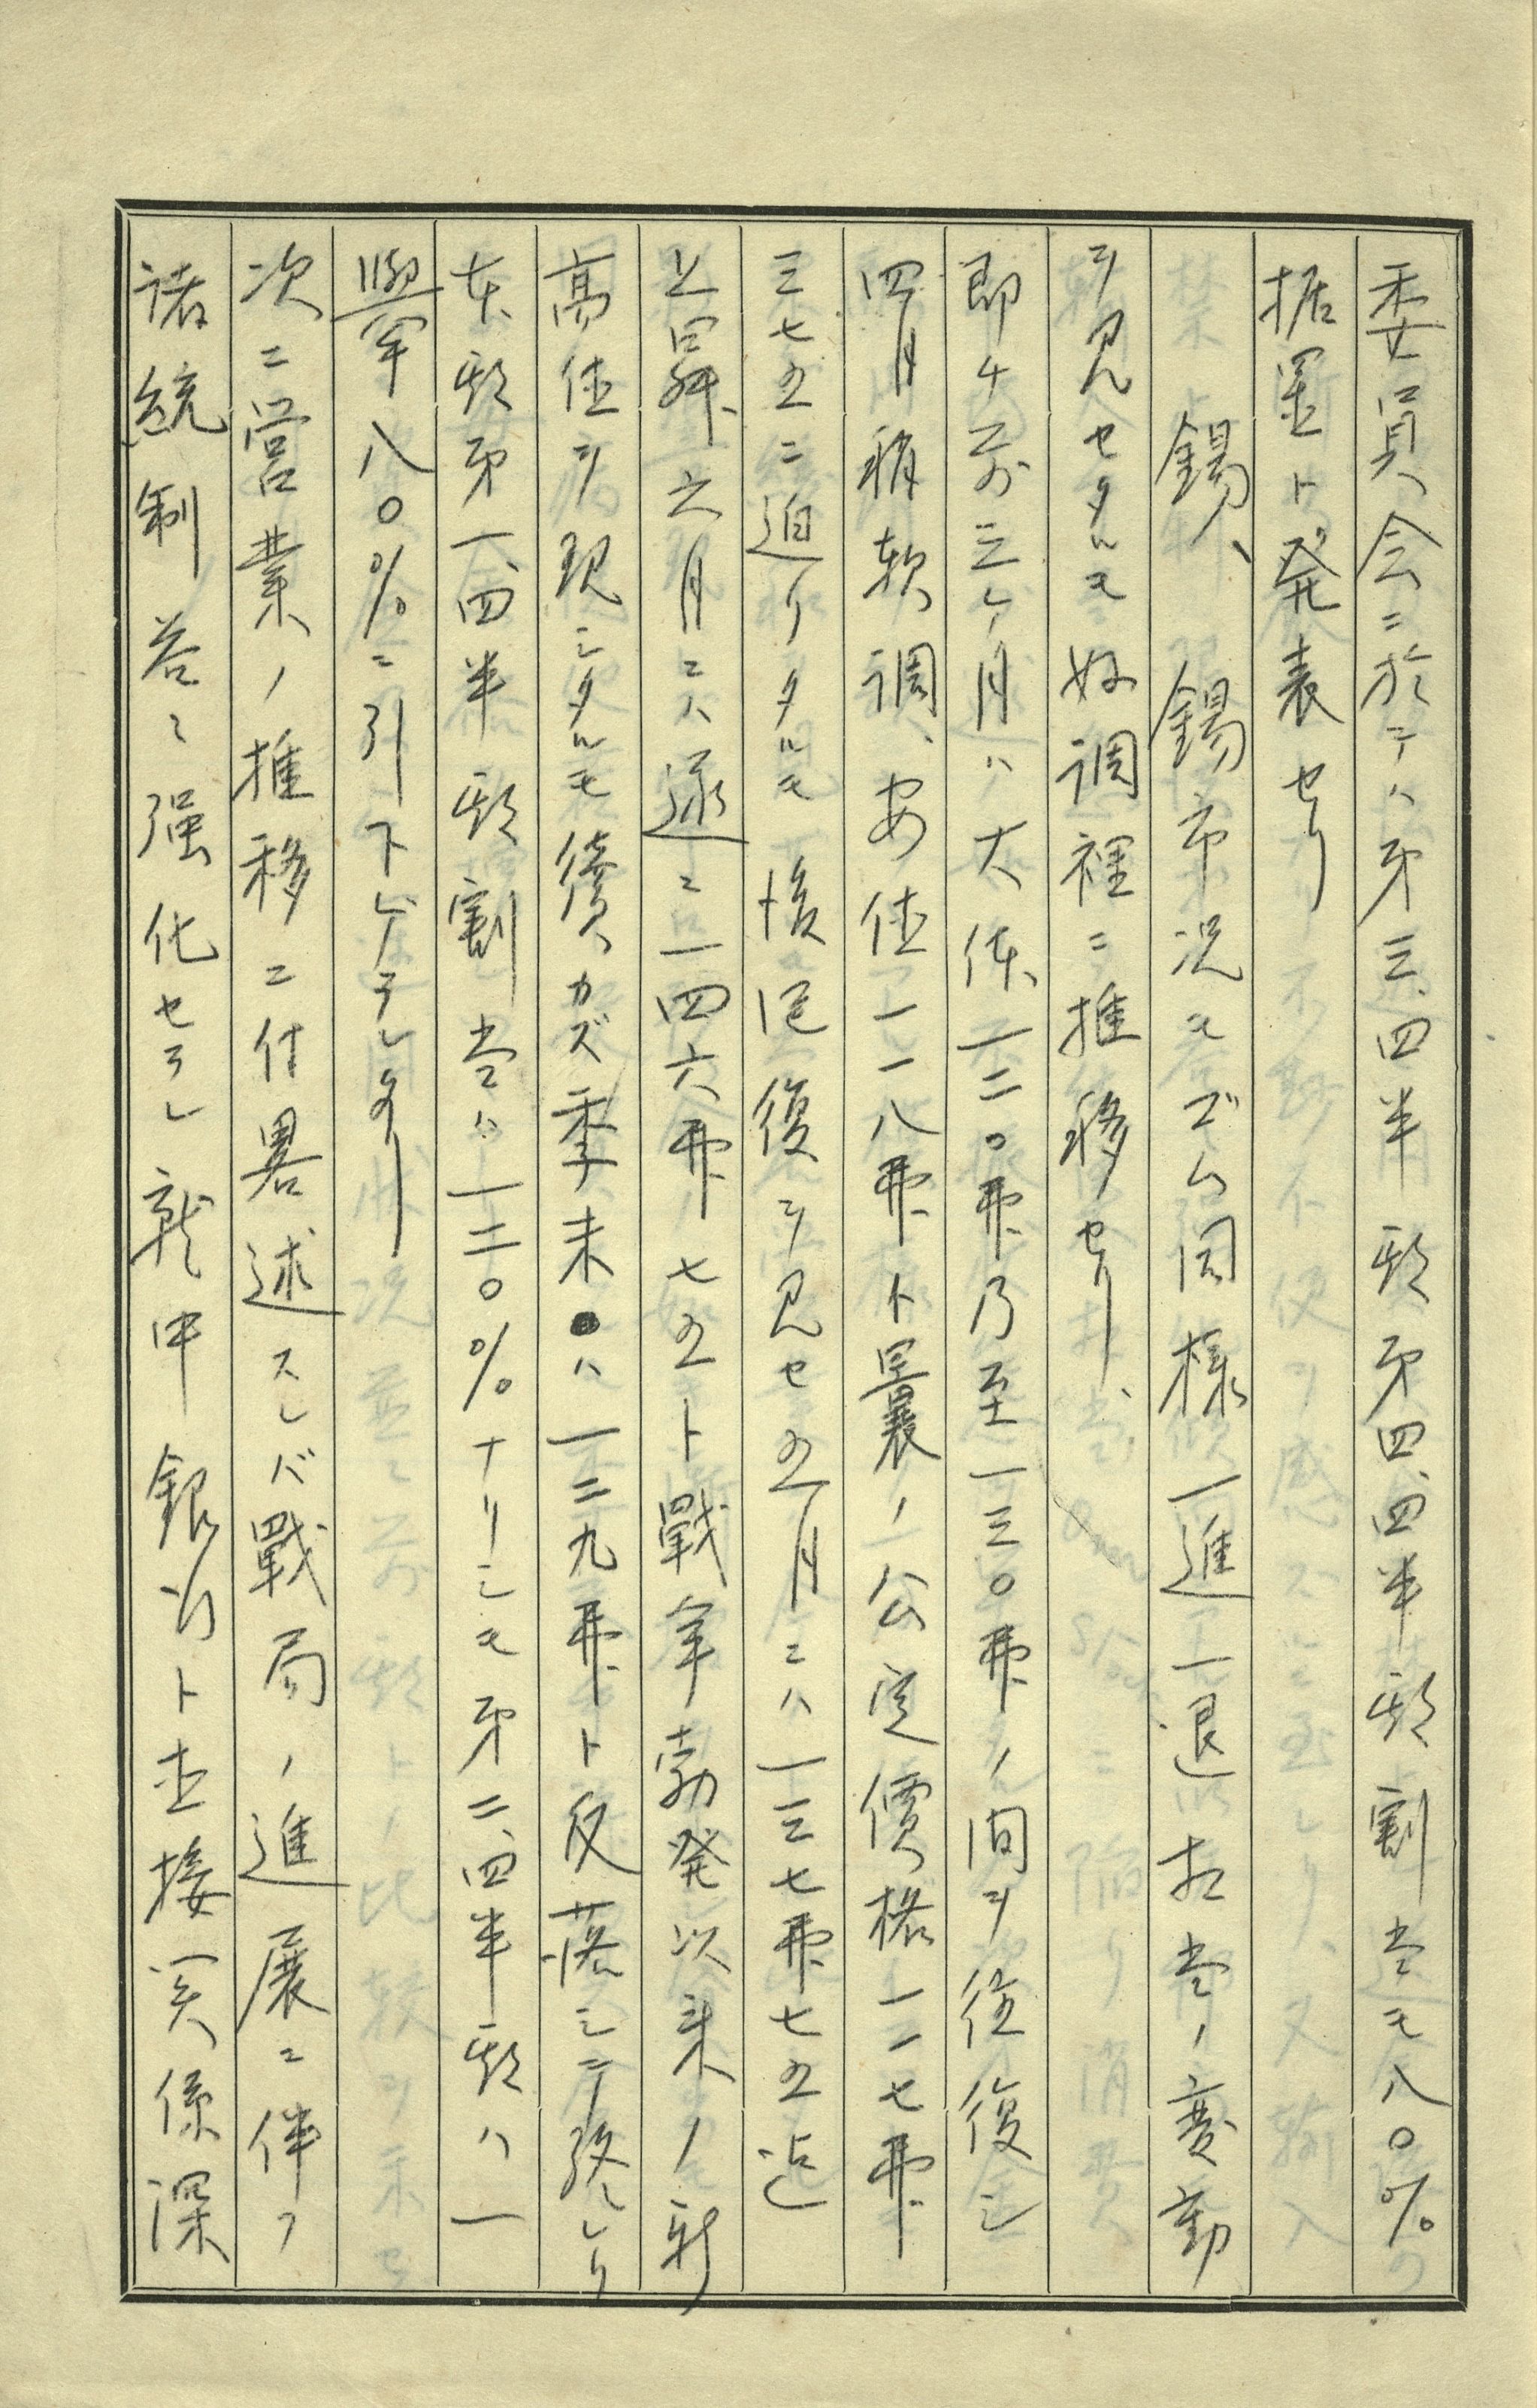 委員会ニ於テハ第三、四半期第四、四半期割当モ八〇%
据置ト発表セリ
錫、　錫市況モゴム同様一進一退相当ノ変動
ヲ見セタルモ好調裡ニ推移セリ、
即チ前三ケ月ハ大体一二〇弗乃至一三〇弗ノ間ヲ往復シ
四月稍軟調、安値一一八弗ト曩ノ公定價格一一七弗
三七五ニ迫リタルモ後恢復ヲ見セ五月ニハ一三七弗七五迄
上昇、六月ニハ遂ニ一四六弗七五ト戰争勃発以来ノ新
高値ヲ現シタルモ續カズ季末ハ一二九弗ト反落シテ終レリ
本期第一、四半期割当ハ一二〇%ナリシモ第二、四半期ハ一
擧八〇%ニ引下ゲラレタリ
次ニ営業ノ推移ニ付畧述スレバ戰局ノ進展ニ伴フ
諸統制益々強化セラレ就中銀行ト直接関係深